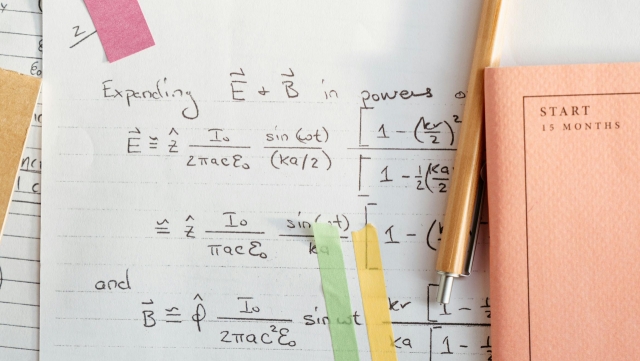 2
Expanding E⃗ + B⃗ in powers o
E⃗ ≅ ẑ I₀ / 2πacε₀ sin(ωt) / (ka/2) [1 - (kr/2)² / [1 - ½(ka/2
≅ ẑ I₀ / πacε₀ sin(ωt) / ka [1 - (
and
B⃗ ≅ φ̂ I₀ / 2πac²ε₀ sin ωt kr / ka [1 - ½ / [1 - ½
START
15 MONTHS